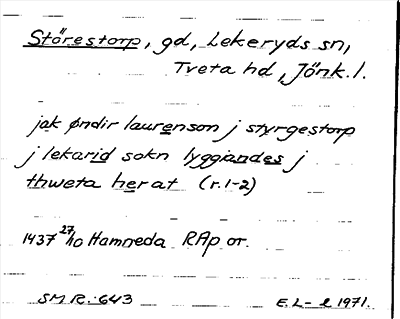 Störestorp, gd, Lekeryds sn,
Tveta hd, Jönk. l.
jak øndir laurenson j styrgestorp
j lekarid sokn lyggiandes j
thweta herat (r. 1-2)
1437 27/10 Hamneda RAp or.
SMR: 643 E. L-l 1971.